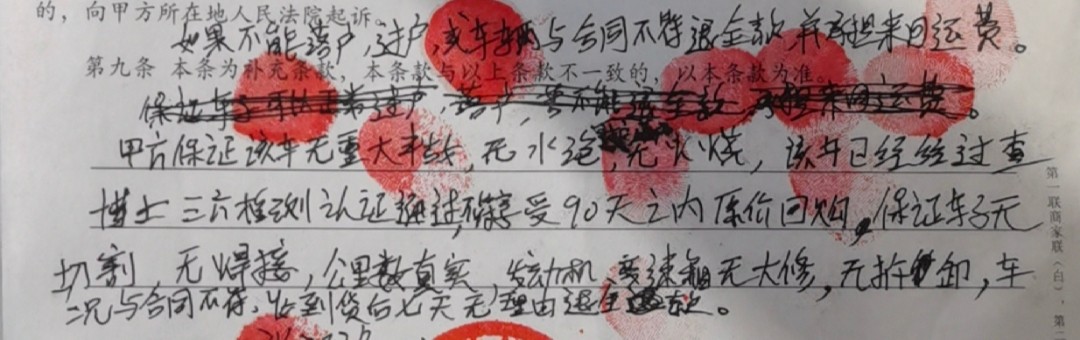 的，向甲方所在地人民法院起诉。
如果不能落户，过户，或车辆与合同不符退全款，并承担来回运费。
第九条 本条为补充条款，本条款与以上条款不一致的，以本条款为准。
保证车子可以正常过户，落户，若不能退全款 承担来回运费。
甲方保证该车无重大事故，无水泡，无火烧，该车已经经过查
博士三方检测认证通过，享受90天之内原价回购，保证车子无
切割，无焊接，公里数真实，发动机 变速箱无大修，无拆卸，车
况与合同不符，收到货后七天无理由退全款。
第一联商家联（白），第二